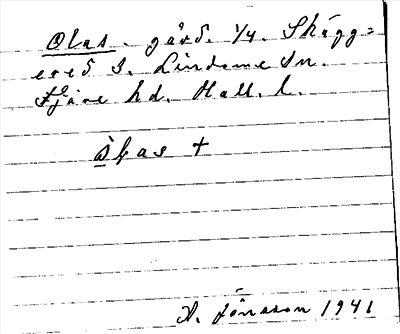 Olas. gård. 1/4. Skägg=
ered I. Lindome Sn.
Fjäre hd. Hall. l.
+
A. Jönsson 1941